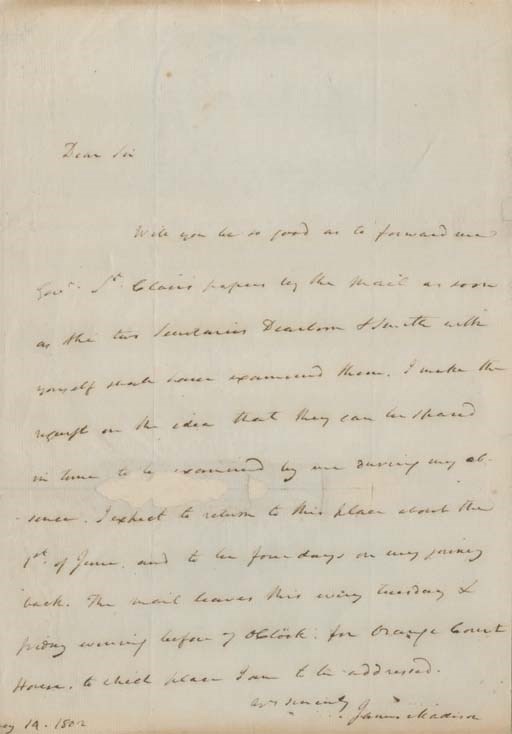 Dear Sir
Will you be so good as to forward me
Govr. St. Clair's papers by the mail as soon
as the two Secretaries Dearborn & Smith with
yourself shall have examined them. I make the
request on the idea that they can be spared
in time to be examined by me during my ab-
-sence. I expect to return to this place about the
1st. of June, and to be four days on my journey
back. The mail leaves this every tuesday &
friday evening before 7 OClock. for Orange Court
House, to which place I am to be addressed.
Yrs sincerely
James Madison
14. 1802